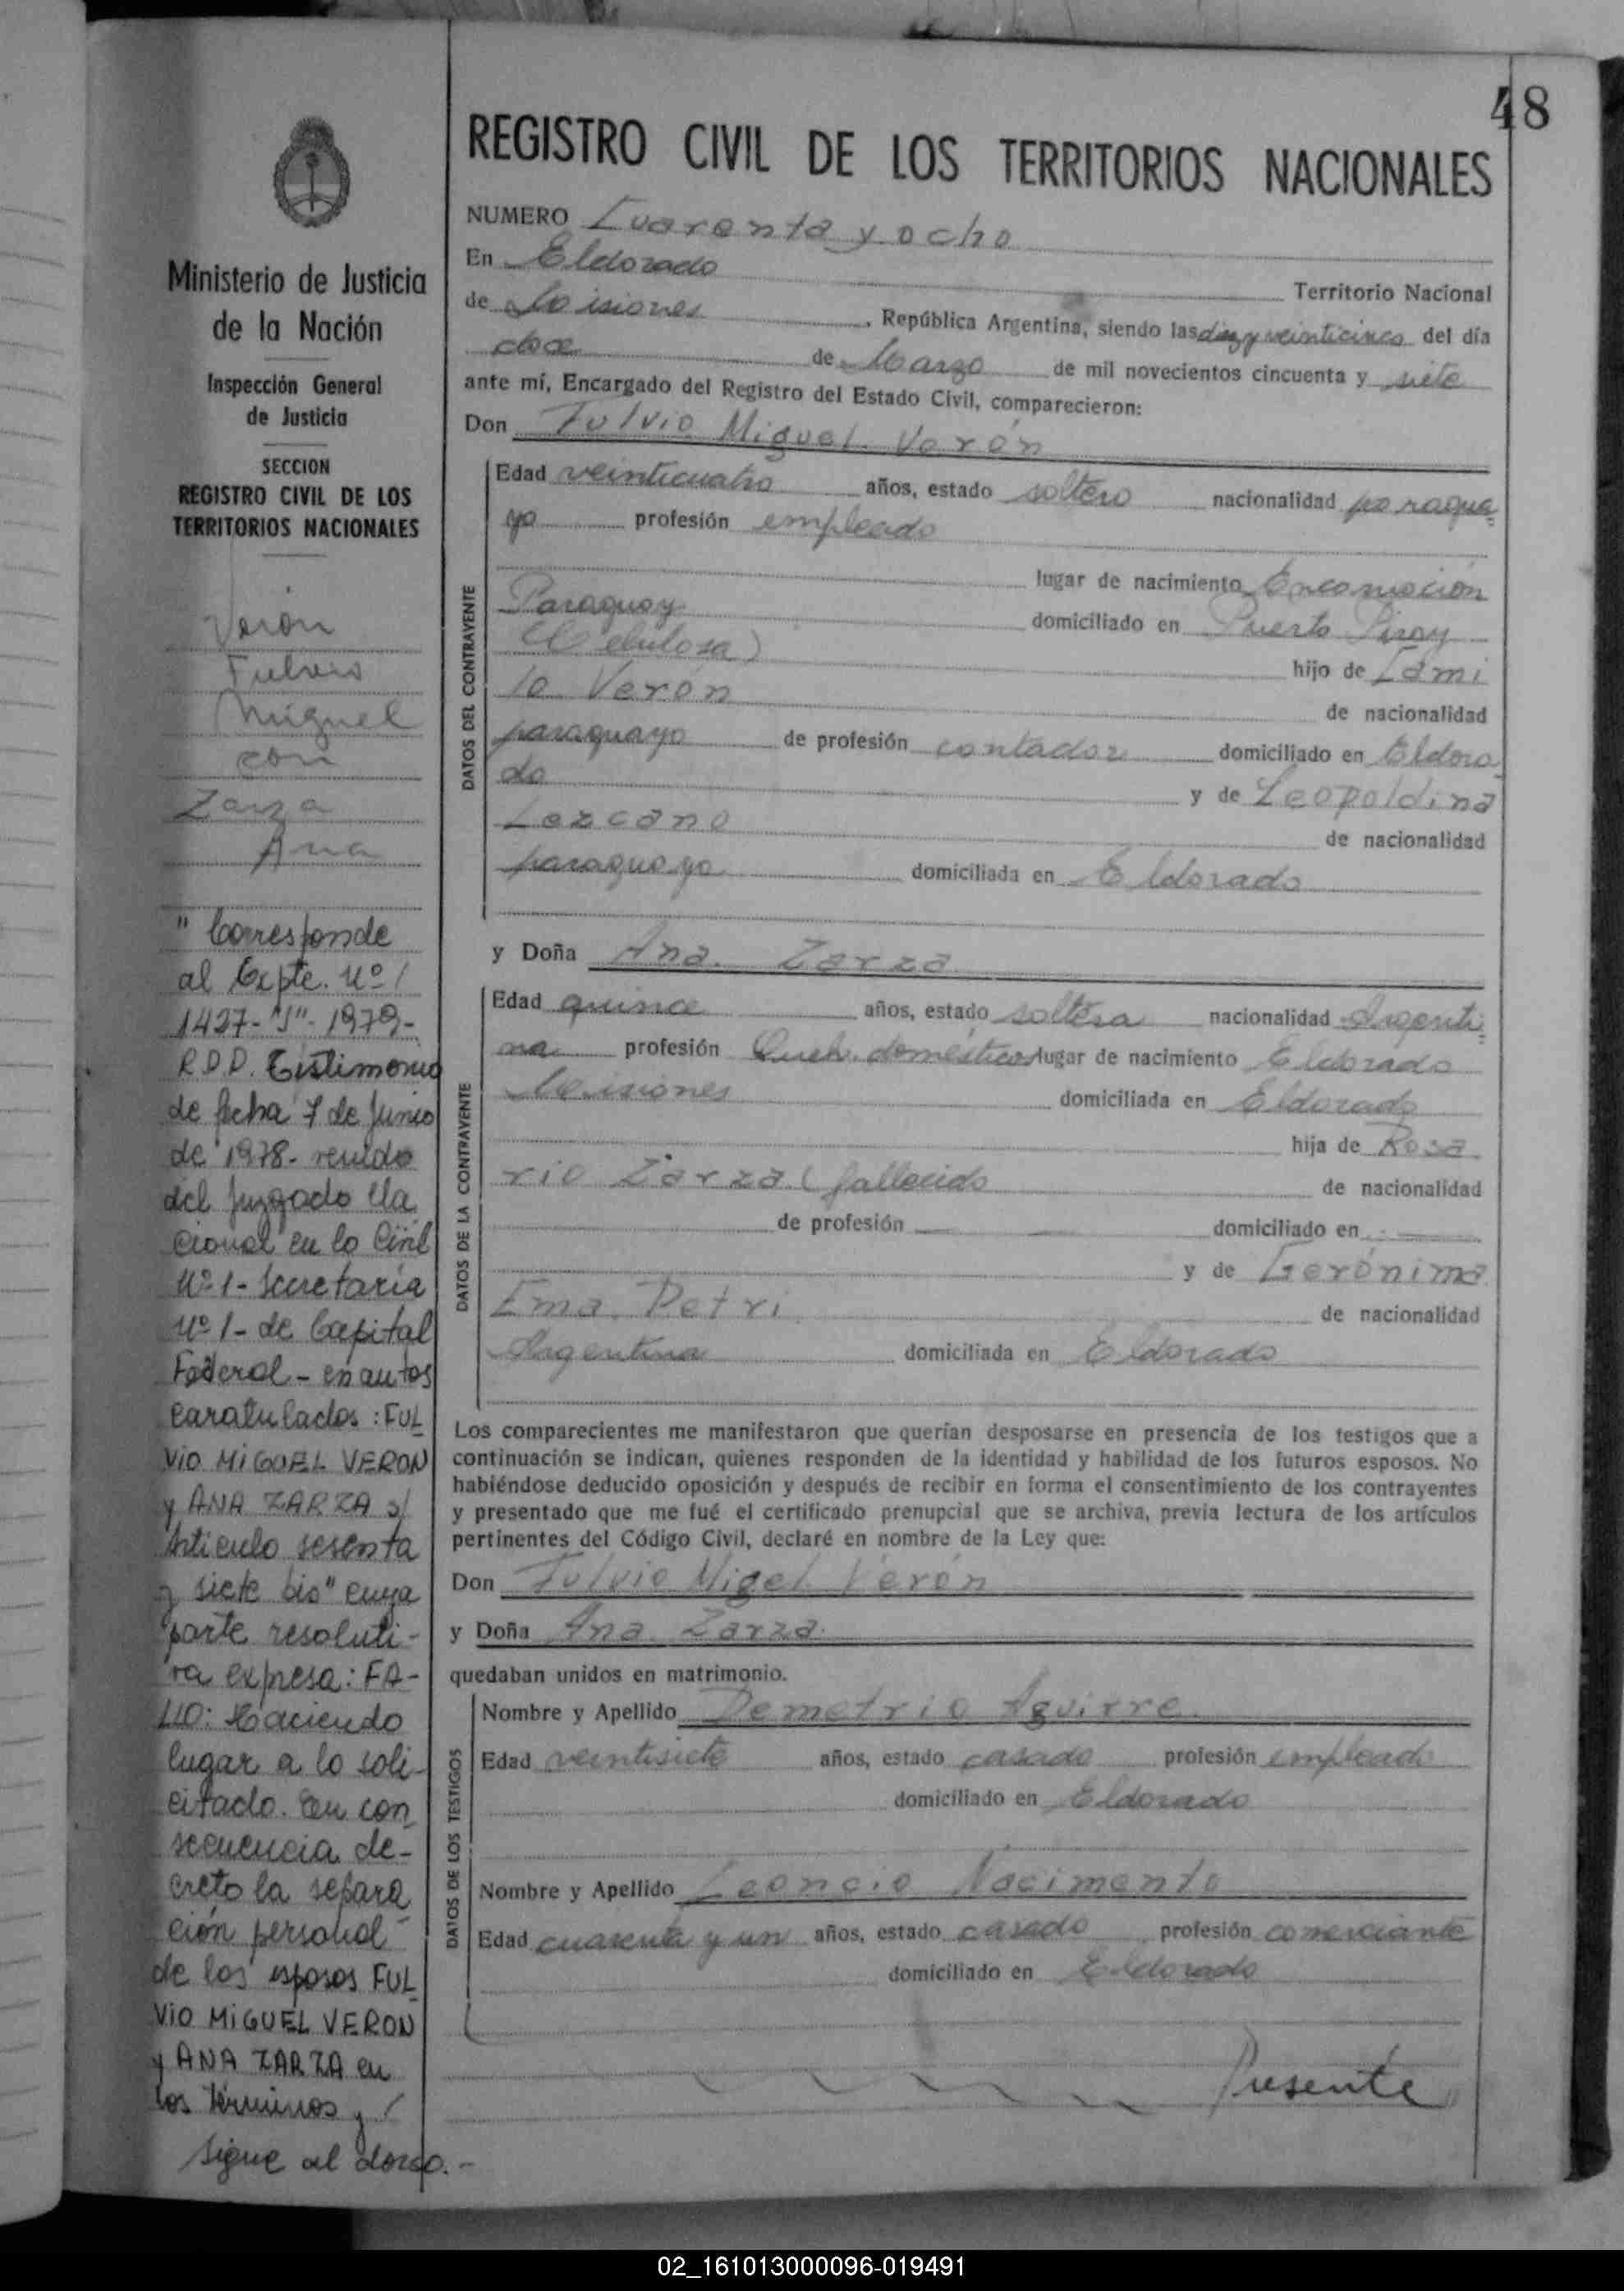 48
REGISTRO CIVIL DE LOS TERRITORIOS NACIONALES
Ministerio de Justicia
de la Nación
Inspección General
de Justicia
SECCION
REGISTRO CIVIL DE LOS
TERRITORIOS NACIONALES
Verón
Fulvio
Miguel
con
Zarza
Ana
" Corresponde
al Expte. Nº /
1427-"J"-1979-
R.D.P. Testimonio
de fecha 7 de Junio
de 1978- venido
del Juzgado Na
cional en lo Civil
Nº 1- Secretaría
Nº 1- de Capital
Federal - en autos
caratulados : FUL
VIO MIGUEL VERON
y ANA ZARZA s/
Artículo sesenta
y siete bis" cuya
parte resoluti-
va expresa: FA-
LLO: Haciendo
lugar a lo soli-
citado. En con
secuencia de-
creto la separa
ción personal
de los esposos FUL
VIO MIGUEL VERON
y ANA ZARZA en
los términos y /
sigue al dorso.-
NUMERO Cuarenta y ocho
En Eldorado Territorio Nacional
de Misiones, República Argentina, siendo las diez y veinticinco del día
doce de Marzo de mil novecientos cincuenta y siete
ante mí, Encargado del Registro del Estado Civil, comparecieron:
Don Fulvio Miguel Verón
DATOS DEL CONTRAYENTE
Edad veinticuatro años, estado soltero nacionalidad paragua
yo profesión empleado
lugar de nacimiento Encarnación
Paraguay domiciliado en Puerto Piray
(Celulosa) hijo de Cami
lo Verón de nacionalidad
paraguayo de profesión contador domiciliado en Eldora
do y de Leopoldina
Lezcano de nacionalidad
paraguaya domiciliada en Eldorado
y Doña Ana Zarza
DATOS DE LA CONTRAYENTE
Edad quince años, estado soltera nacionalidad Argenti
na profesión Queh. domésticos lugar de nacimiento Eldorado
Misiones domiciliada en Eldorado
hija de Rosa
rio Zarza (fallecido de nacionalidad
de profesión domiciliado en
y de Gerónima
Ema Petri de nacionalidad
Argentina domiciliada en Eldorado
Los comparecientes me manifestaron que querían desposarse en presencia de los testigos que a
continuación se indican, quienes responden de la identidad y habilidad de los futuros esposos. No
habiéndose deducido oposición y después de recibir en forma el consentimiento de los contrayentes
y presentado que me fué el certificado prenupcial que se archiva, previa lectura de los artículos
pertinentes del Código Civil, declaré en nombre de la Ley que:
Don Fulvio Migel Verón
y Doña Ana Zarza
quedaban unidos en matrimonio.
DATOS DE LOS TESTIGOS
Nombre y Apellido Demetrio Aguirre
Edad veintisiete años, estado casado profesión empleado
domiciliado en Eldorado
Nombre y Apellido Leoncio Nacimento
Edad cuarenta y un años, estado casado profesión comerciante
domiciliado en Eldorado
Presente
02_161013000096-019491